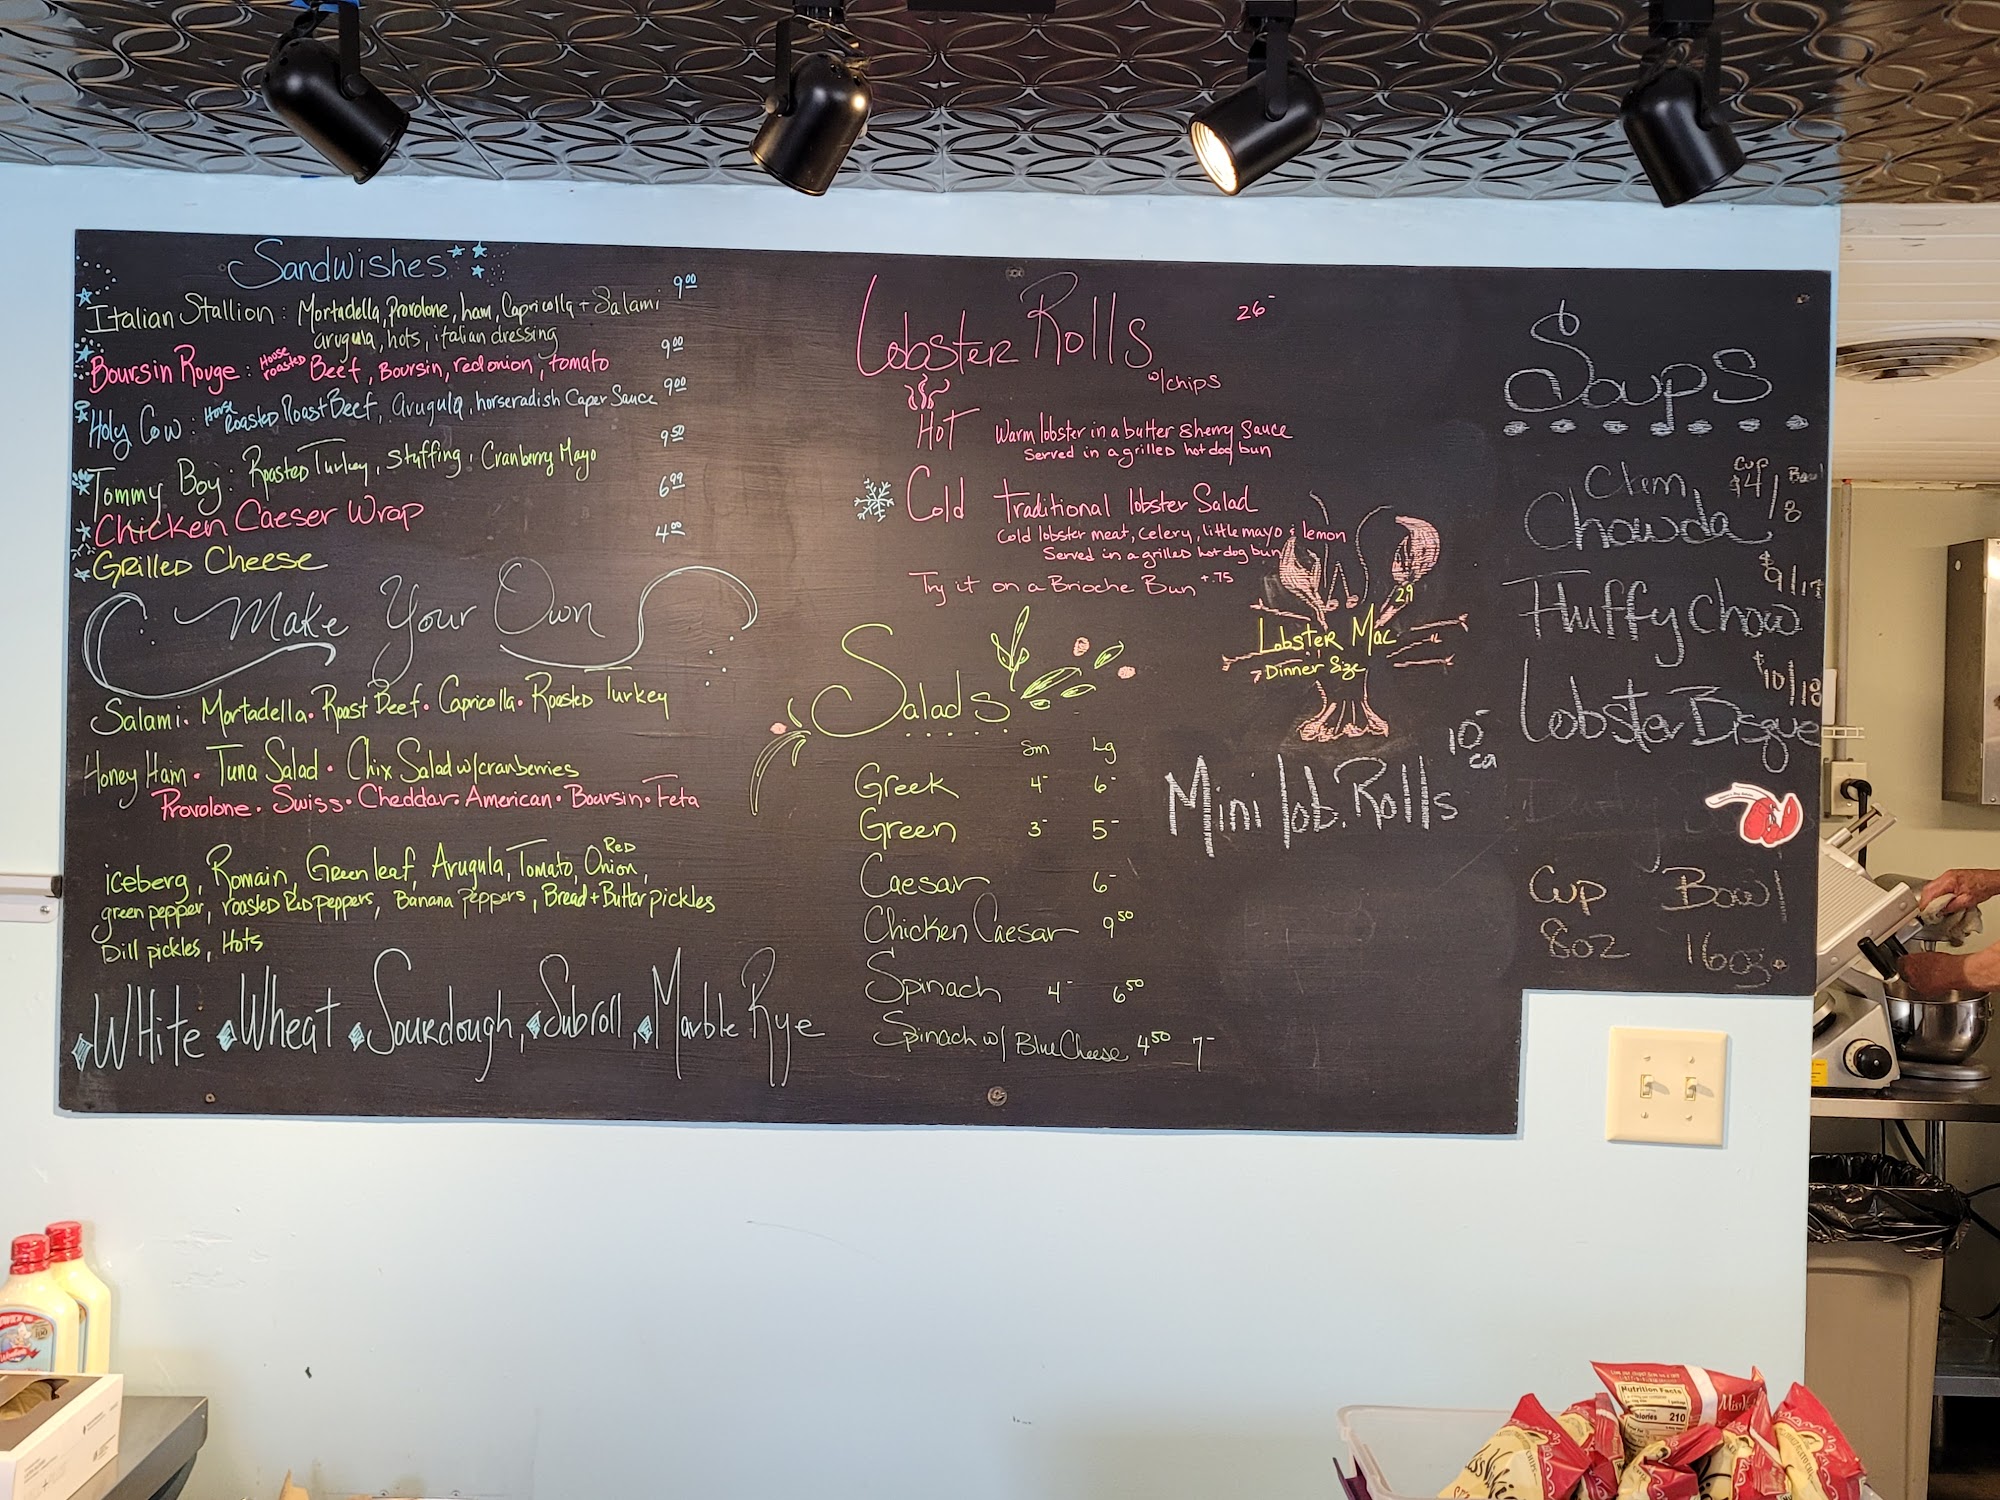 Sandwishes
Italian Stallion: Mortadella, Provolone, ham, Capricolla + Salami 9.00
arugula, hots, italian dressing
Boursin Rouge: House roasted Beef, Boursin, red onion, tomato 9.00
Holy Cow: Roasted Roast Beef, Arugula, horseradish Caper Sauce 9.00
Tommy Boy: Roasted Turkey, Stuffing, Cranberry Mayo 9.50
Chicken Caeser Wrap 6.99
Grilled Cheese 4.00
Make Your Own
Salami · Mortadella · Roast Beef · Capricolla · Roasted Turkey
Honey Ham · Tuna Salad · Chix Salad w/cranberries
Provolone · Swiss · Cheddar · American · Boursin · Feta
iceberg, Romain, Green leaf, Arugula, Tomato, Red Onion,
green pepper, roasted Red peppers, Banana peppers, Bread + Butter pickles
Dill pickles, Hots
White Wheat Sourdough, Subroll, Marble Rye
Lobster Rolls 26-
w/chips
Hot Warm lobster in a butter sherry sauce
Served in a grilled hotdog bun
Cold traditional lobster Salad
Cold lobster meat, celery, little mayo & lemon
Served in a grilled hotdog bun
Try it on a Brioche Bun +.75
29
Lobster Mac
Dinner Size
Salads
Sm Lg
Greek 4- 6-
Green 3- 5-
Caesar 6-
Chicken Caesar 9.50
Spinach 4- 6.50
Spinach w/ Blue Cheese 4.50 7-
10- ca
Mini lob. Rolls
Soups
Cup Bowl
Clam $4/8
Chowda
$9/17
Fluffy Chow
$10/18
Lobster Bisque
Cup Bowl
8oz 16oz.
Nutrition Facts
Calories 210